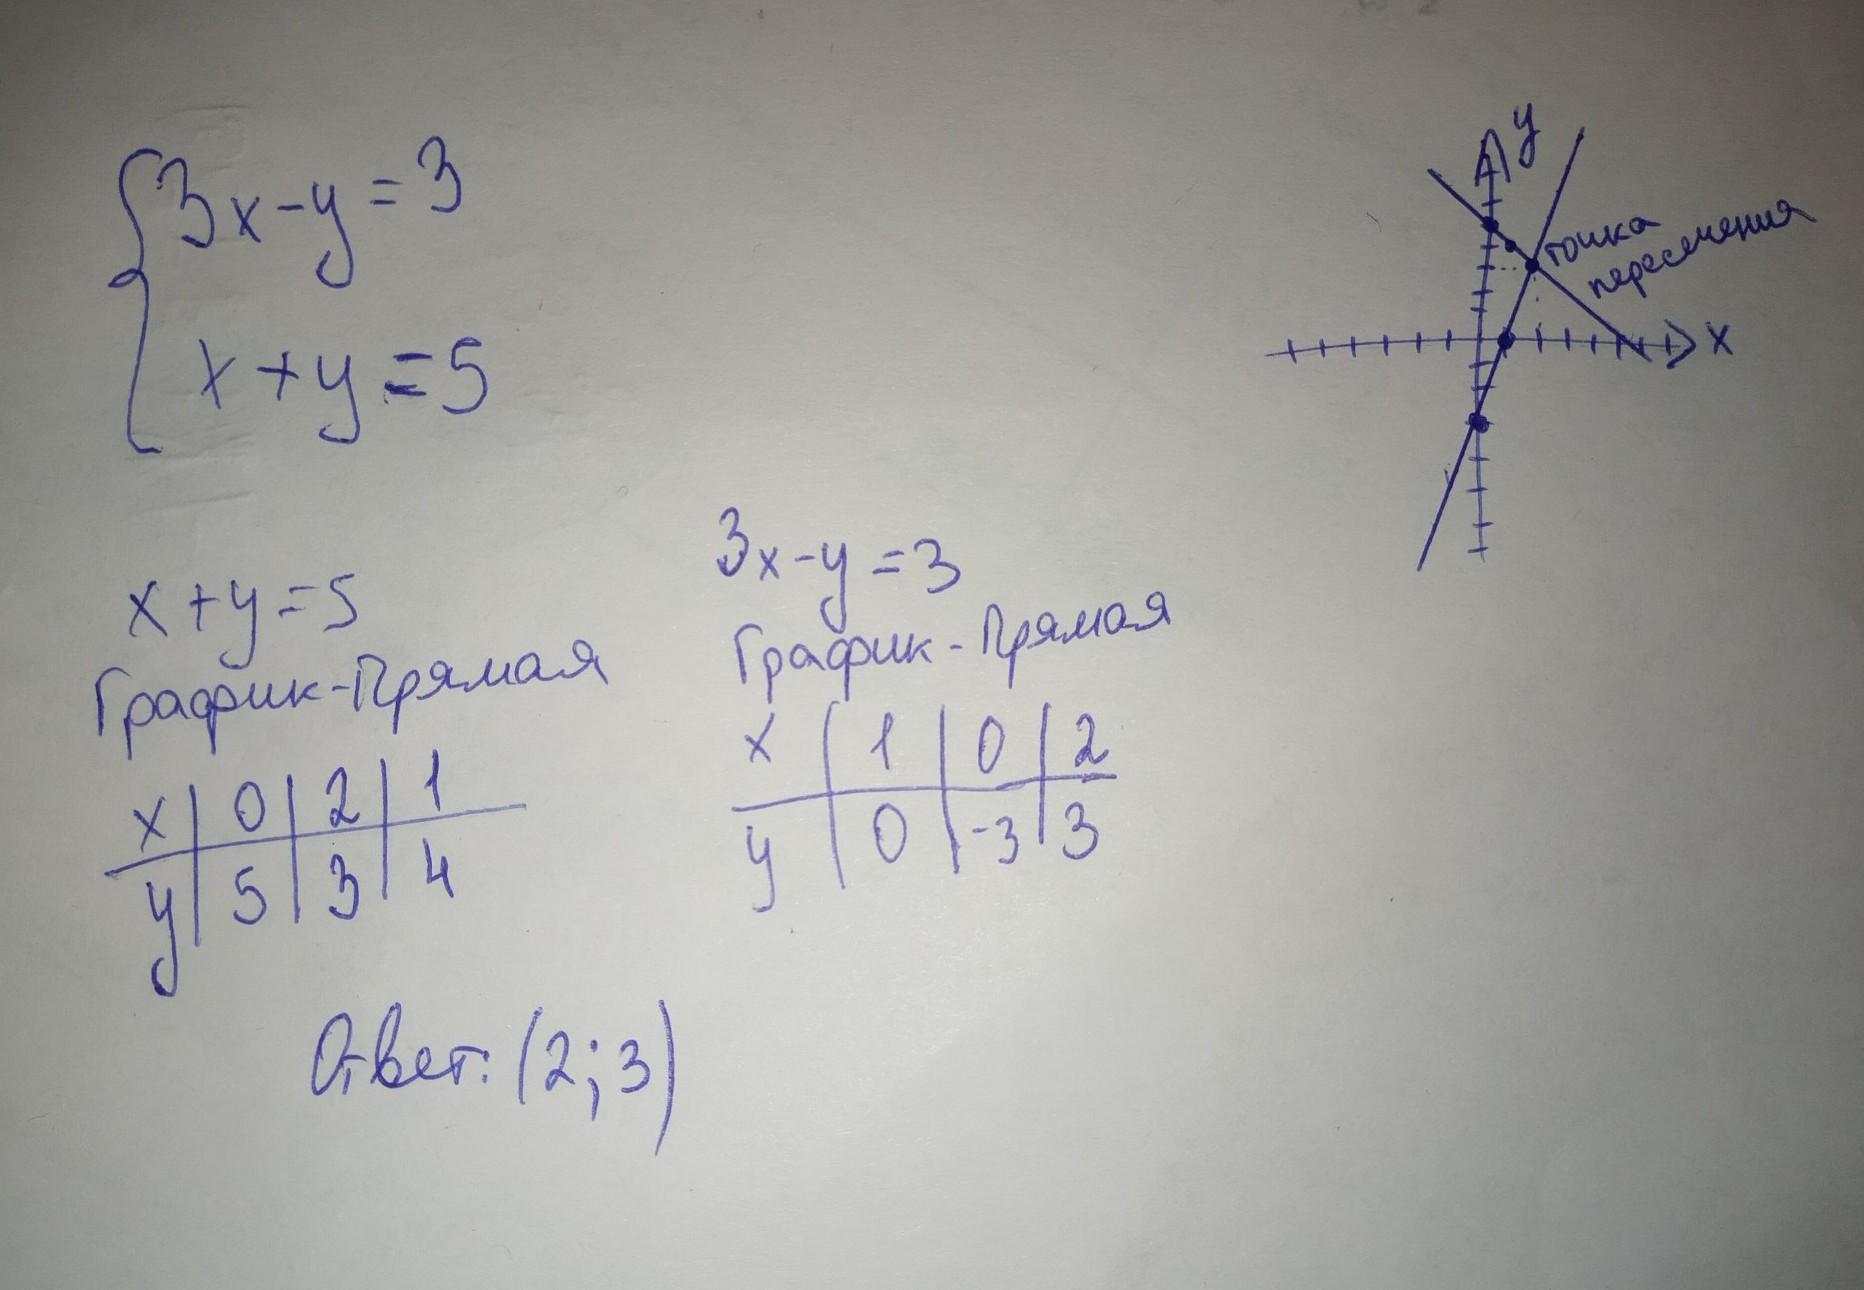 3x-y=3
x+y=5
y
точка
пересечения
x
x+y=5
График-Прямая
x | 0 | 2 | 1
y | 5 | 3 | 4
3x-y=3
График-Прямая
x | 1 | 0 | 2
y | 0 | -3 | 3
Ответ: (2;3)